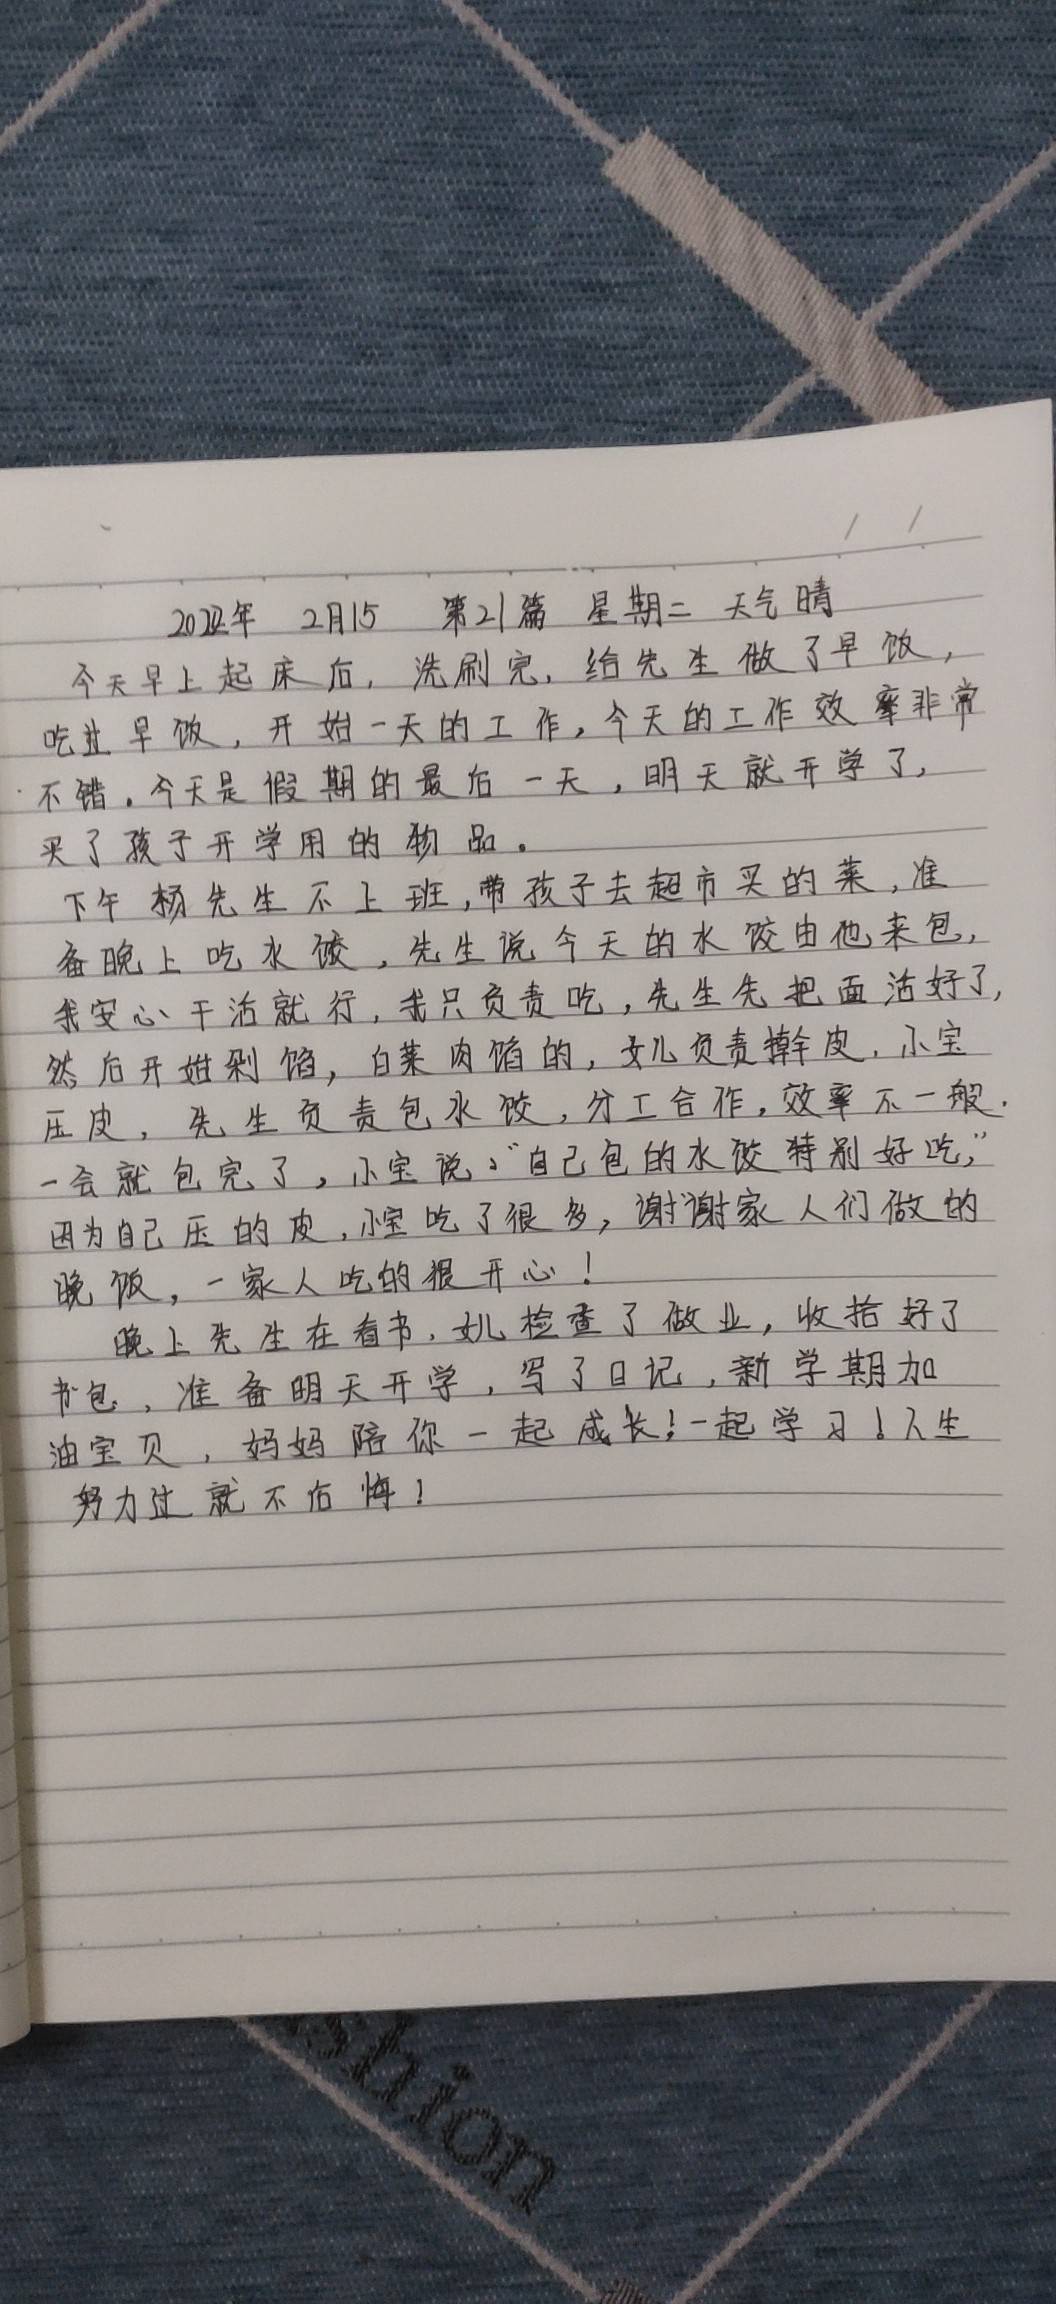 2022年 2月15 第21篇 星期二 天气晴
今天早上起床后，洗刷完，给先生做了早饭，
吃过早饭，开始一天的工作，今天的工作效率非常
不错。今天是假期的最后一天，明天就开学了，
买了孩子开学用的物品。
下午杨先生不上班，带孩子去超市买的菜，准
备晚上吃水饺，先生说今天的水饺由他来包，
我安心干活就行，我只负责吃，先生先把面活好了，
然后开始剁馅，白菜肉馅的，女儿负责擀皮，小宝
压皮，先生负责包水饺，分工合作，效率不一般.
一会就包完了，小宝说："自己包的水饺特别好吃，"
因为自己压的皮，小宝吃了很多，谢谢家人们做的
晚饭，一家人吃的很开心！
晚上先生在看书，女儿检查了做业，收拾好了
书包，准备明天开学，写了日记，新学期加
油宝贝，妈妈陪你一起成长！一起学习！人生
努力过就不后悔！
shion